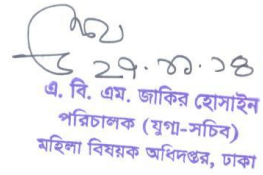 এ. বি. এম. জাকির হোসাইন
পরিচালক (যুগ্ম-সচিব)
মহিলা বিষয়ক অধিদপ্তর, ঢাকা